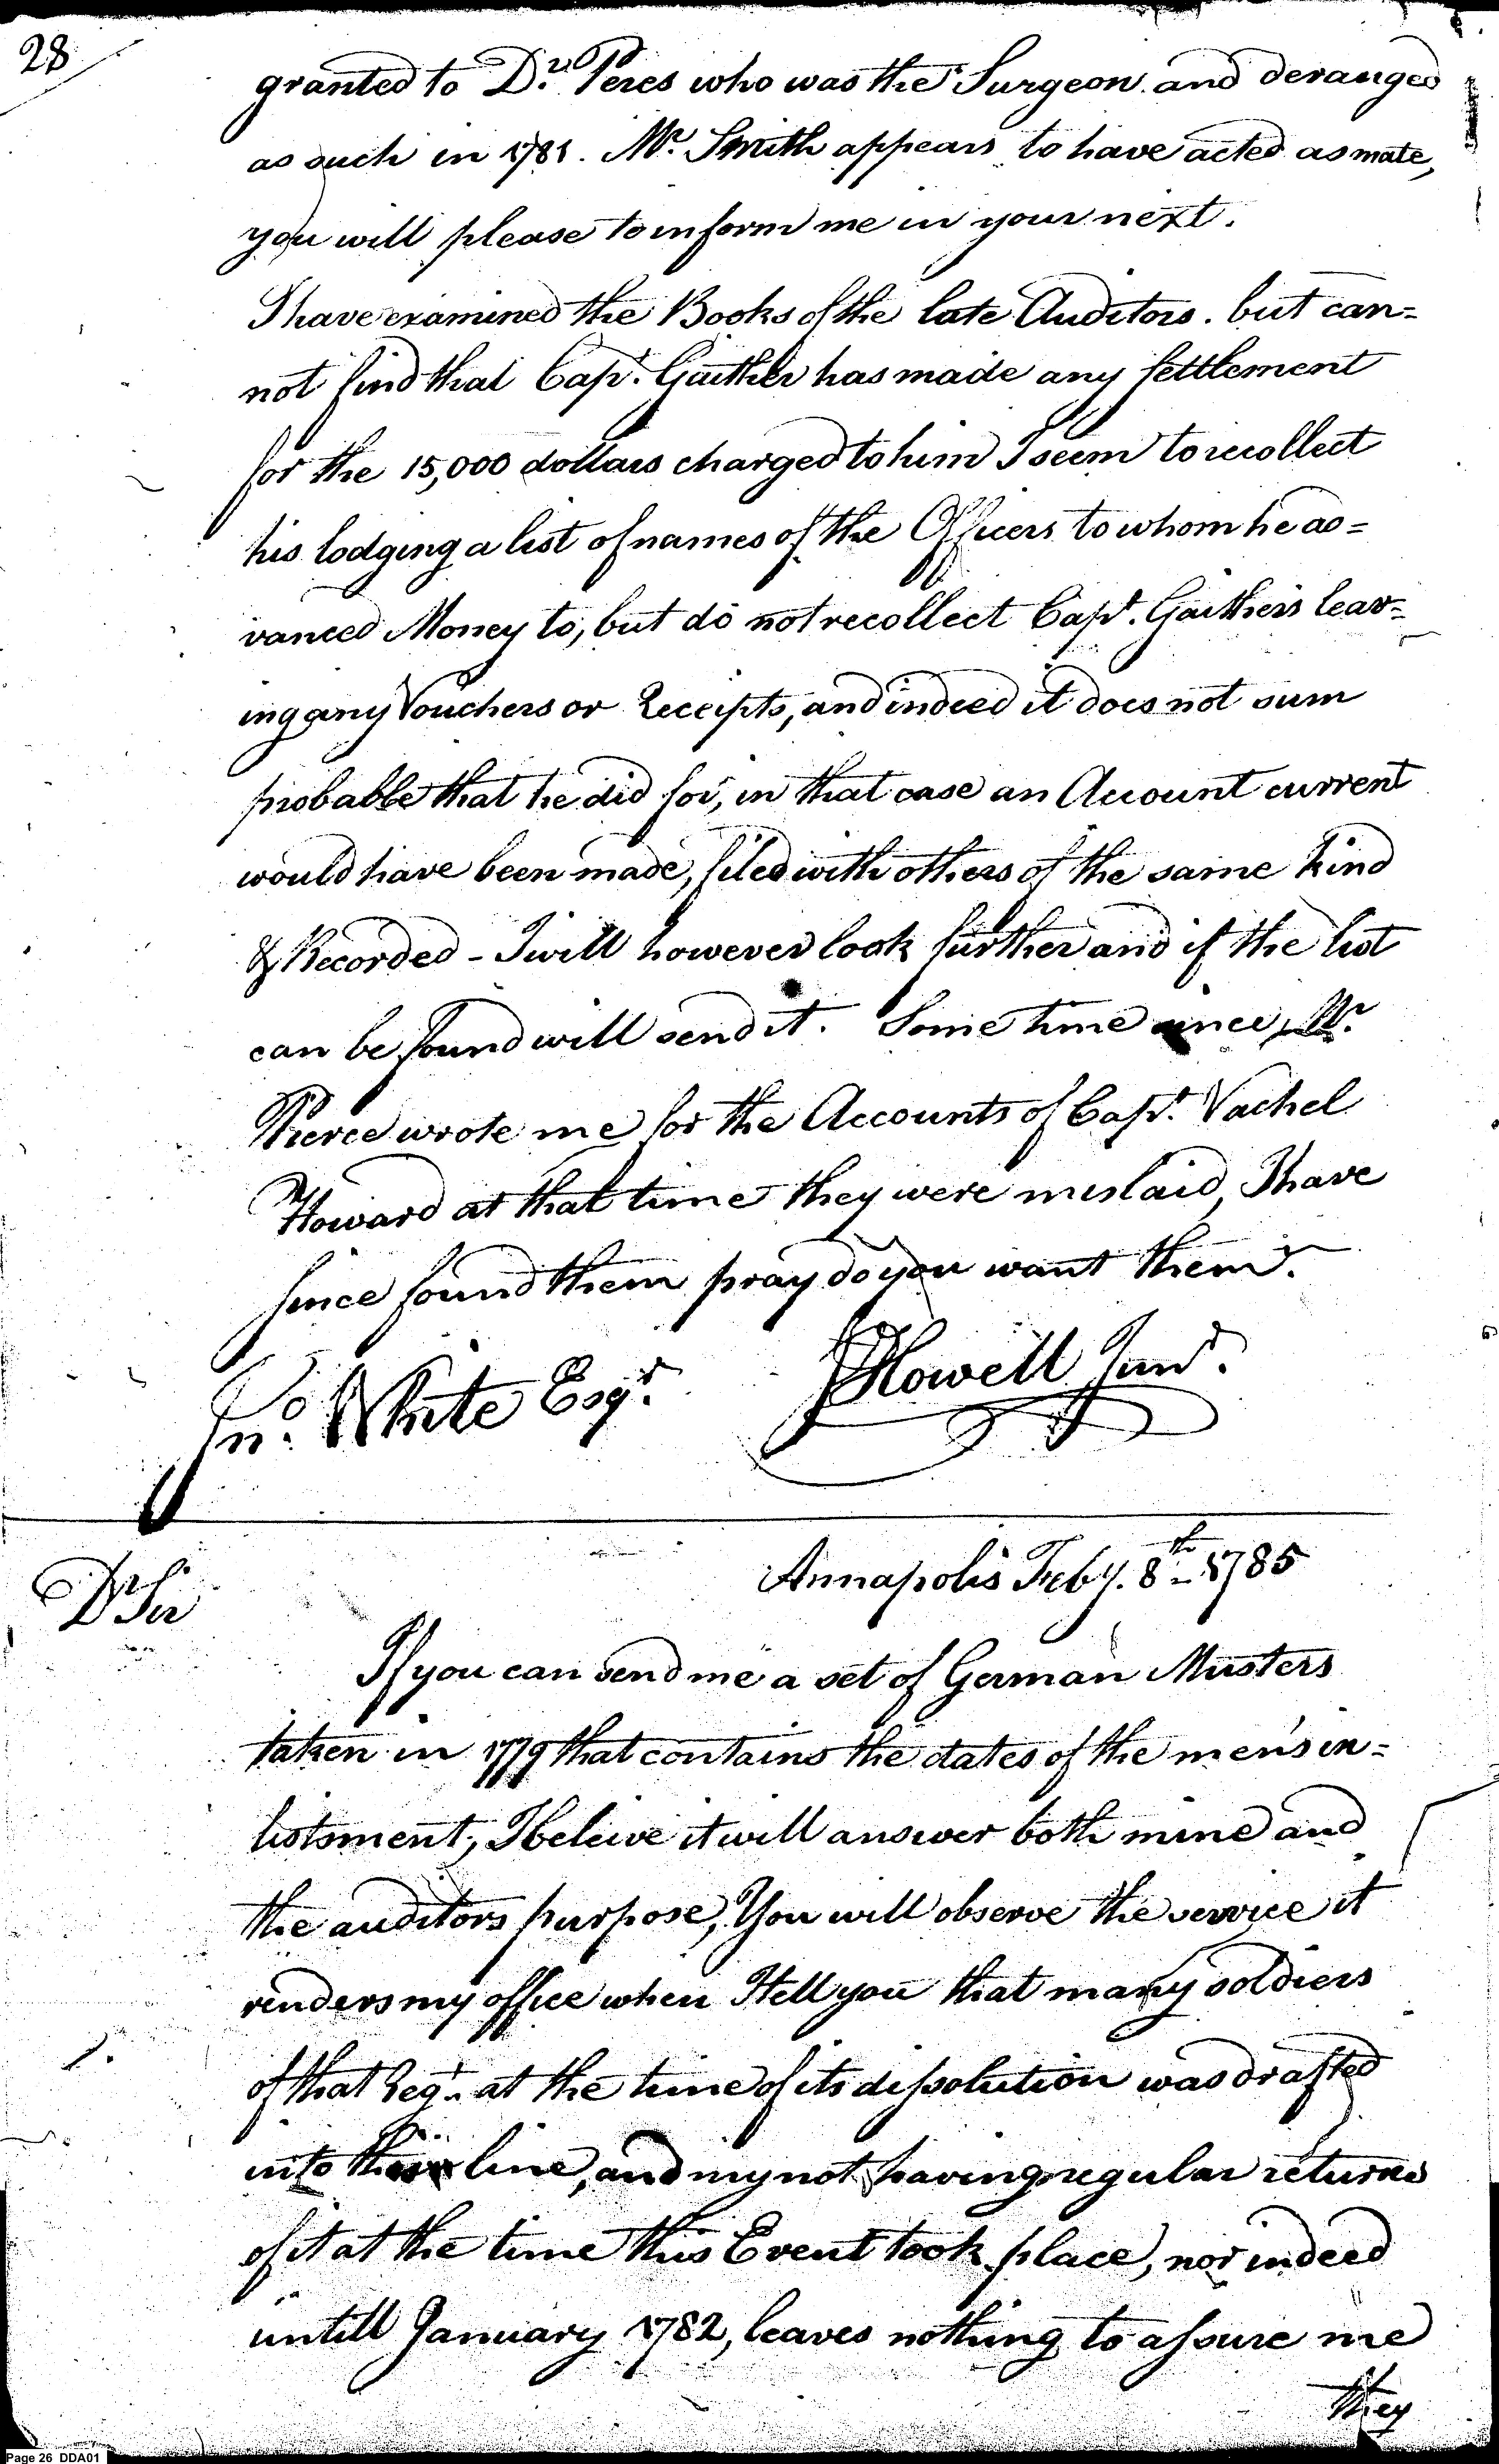 28
granted to Dr. Peres who was the Surgeon and deranged
as such in 1781. Mr. Smith appears to have acted as mate,
you will please to inform me in your next.
I have examined the Books of the late Auditors. but can=
not find that Capt. Gaither has made any settlement
for the 15,000 dollars charged to him I seem to recollect
his lodging a list of names of the Officers to whom he ad=
vanced Money to, but do not recollect Capt. Gaithers leav=
ing any Vouchers or Receipts, and indeed it does not sum
probable that he did for, in that case an Account current
would have been made, filed with others of the same kind
& Recorded - I will however look further and if the list
can be found will send it. Some time since Mr.
Pierce wrote me for the Accounts of Capt. Vachel
Howard at that time they were mislaid, I have
since found them pray do you want them.
Jno. White Esqr.
JHowell Junr.
Annapolis Feby. 8th 1785
D Sir
If you can send me a set of German Musters
taken in 1779 that contains the dates of the men's in=
listsment, I beleive it will answer both mine and
the auditors purpose, You will observe the service it
renders my office when I tell you that many soldiers
of that Regt. at the time of its dissolution was drafted
into line, and my not having regular returns
of it at the time this Event took place, nor indeed
untill January 1782, leaves nothing to assure me
they
Page 26 DDA01